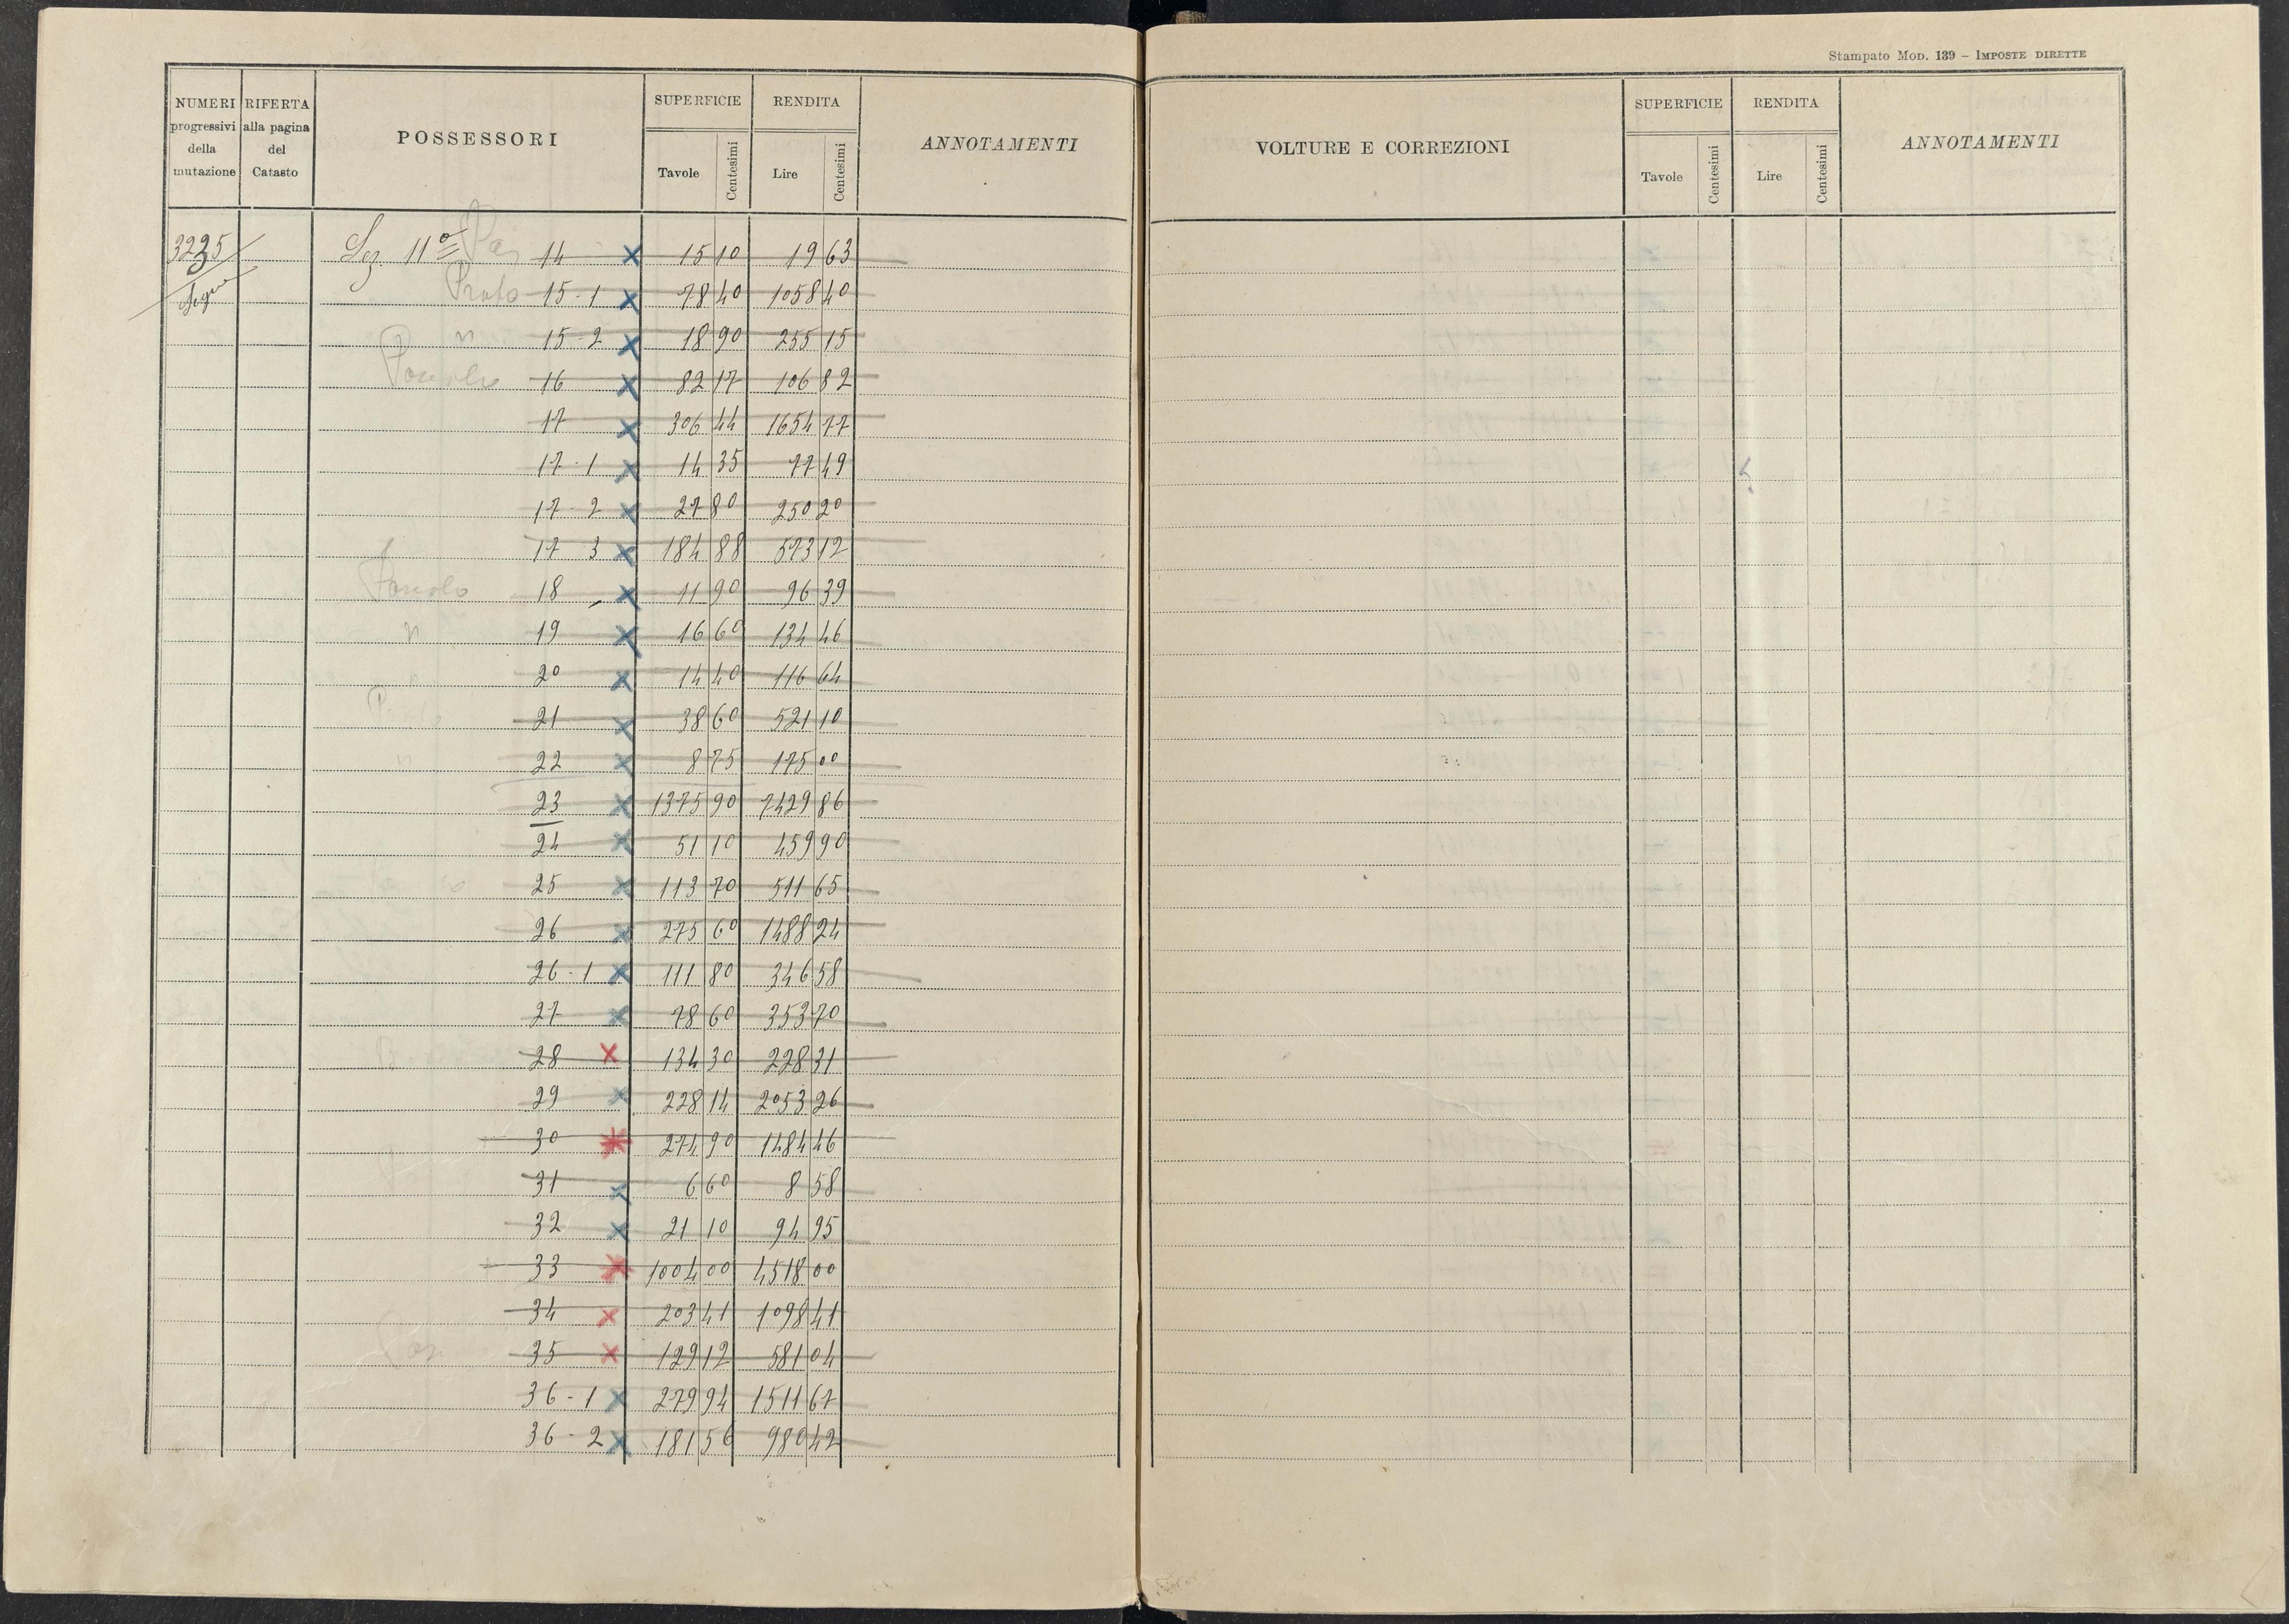 Stampato Mod. 139 – IMPOSTE DIRETTE
NUMERI progressivi della mutazione
RIFERTA alla pagina del Catasto
POSSESSORI
SUPERFICIE
Tavole
Centesimi
RENDITA
Lire
Centesimi
ANNOTAMENTI
3235 Sez. 11º 14 × 15 10 19 63
Segue Prato 15-1 × 78 40 1058 40
" 15-2 × 18 90 255 15
Pascolo 16 × 82 17 106 82
17 × 306 44 1654 77
17-1 × 14 35 77 49
17-2 × 27 80 250 20
17 3 × 184 88 573 12
Pascolo 18 × 11 90 96 39
" 19 × 16 60 134 46
" 20 × 14 40 116 64
21 × 38 60 521 10
" 22 × 8 75 175 00
23 × 1375 90 7429 86
24 × 51 10 459 90
25 × 113 70 511 65
26 × 275 60 1488 24
26-1 × 111 80 346 58
27 × 78 60 353 70
28 × 134 30 228 31
29 × 228 14 2053 26
30 × 274 90 1484 46
31 × 6 60 8 58
32 × 21 10 94 95
33 × 1004 00 4518 00
34 × 203 41 1098 41
35 × 129 12 581 04
36-1 × 279 94 1511 67
36-2 × 181 56 980 42
VOLTURE E CORREZIONI
SUPERFICIE
Tavole
Centesimi
RENDITA
Lire
Centesimi
ANNOTAMENTI